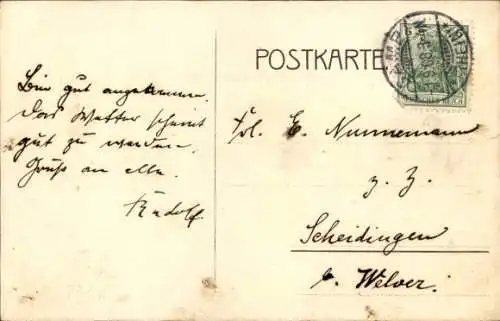 POSTKARTE
Bin gut angekommen.
Das Wetter scheint
gut zu werden.
Gruß an alle.
Rudolf.
Frl. E. Nunnemann
z. Z.
Scheidingen
b. Welver.